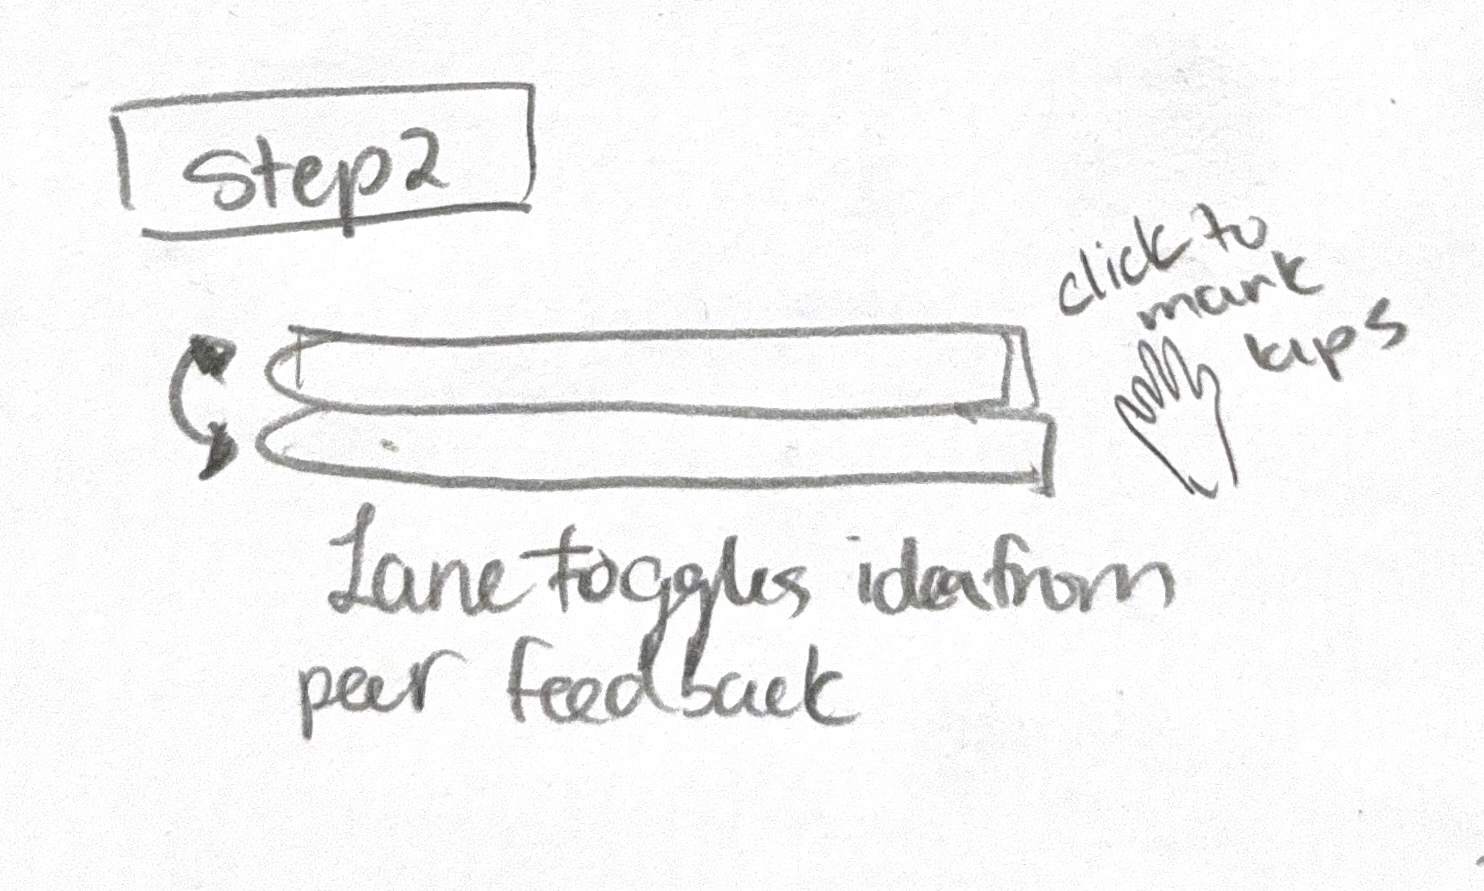 Step2
click to
mark
kips
Lane toggles idea from
peer feedback